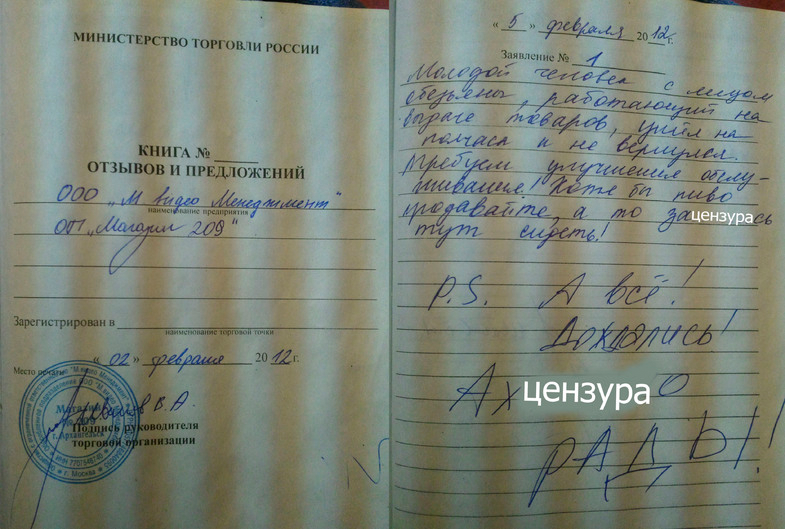 МИНИСТЕРСТВО ТОРГОВЛИ РОССИИ
КНИГА №
ОТЗЫВОВ И ПРЕДЛОЖЕНИЙ
ООО „М видео Менеджмент“
наименование предприятия
ОП „Магазин 209“
Зарегистрирован в
наименование торговой точки
« 02 » февраля 2012 г.
Место печати
Магазин
№ 209
г. Архангельск
г. Москва
В.А.
Подпись руководителя
торговой организации
« 5 » февраля 2012 г.
Заявление № 1
Молодой человек с лицом
обезьяны, работающий на
выдаче товаров, ушёл на
полчаса и не вернулся.
Требуем улучшения обслу-
живания! Хотя бы пиво
продавайте, а то зацензурась
тут сидеть!
P.S. А всё!
Дождались!
Ахцензура О
РАДЫ!